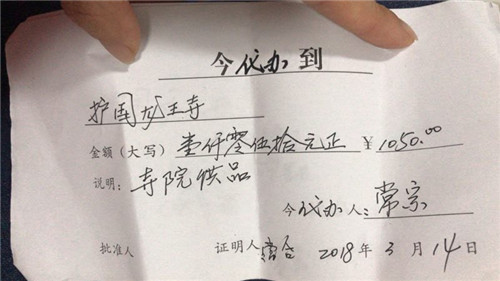 今代办到
护国龙王寺
金额（大写）壹仟零伍拾元正 ￥1050.00
说明：寺院供品
今代办人：常宗
批准人 证明人 2018年3月14日